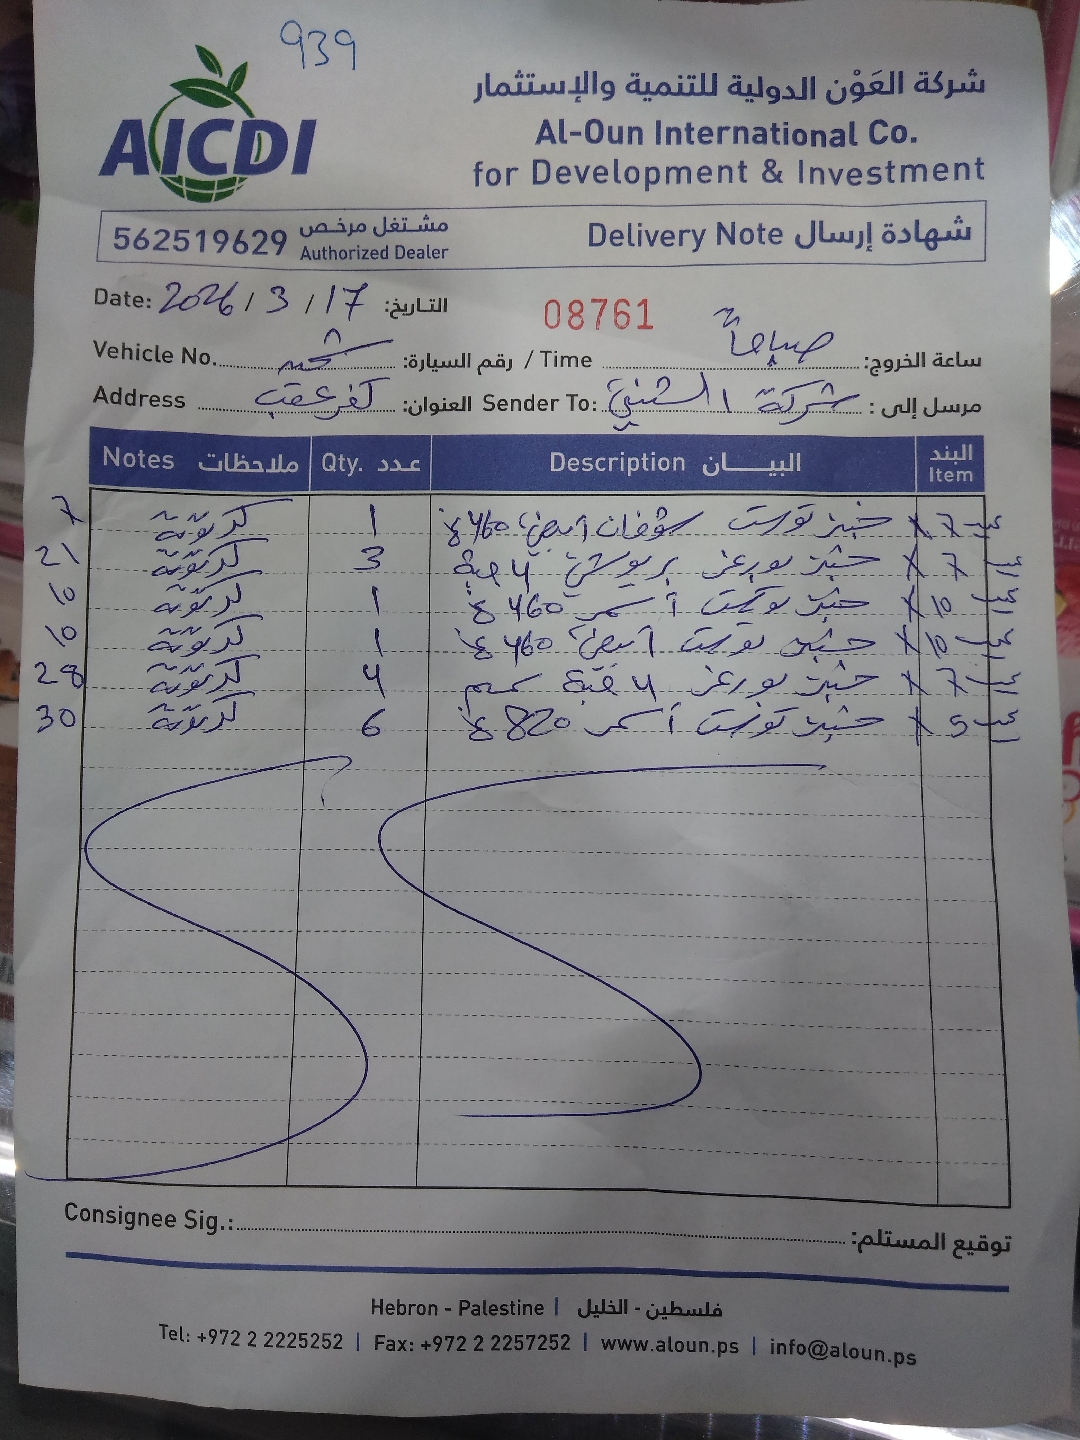 939
AICDI
شركة العَوْن الدولية للتنمية والإستثمار
Al-Oun International Co.
for Development & Investment
562519629 مشتغل مرخص
Authorized Dealer
Delivery Note شهادة إرسال
Date: 2026/3/17 التاريخ:
08761
Vehicle No. رقم السيارة: / Time صباحاً ساعة الخروج:
Address كفر عقب العنوان: Sender To: شركة الشني مرسل إلى:
Notes ملاحظات Qty. عدد Description البيـــان البند Item
7 كرتونة 1 خبز توست شوفان أبيض 460غ X 7
21 كرتونة 3 خبز بورغر بريوش 4 حبة X 7
10 كرتونة 1 خبز توست أسمر 460غ X 10
10 كرتونة 1 خبز توست أبيض 460غ X 10
28 كرتونة 4 خبز بورغر 4 حبة سمسم X 7
30 كرتونة 6 خبز توست أسمر 820غ X 5
Consignee Sig.: توقيع المستلم:
Hebron - Palestine | فلسطين - الخليل
Tel: +972 2 2225252 | Fax: +972 2 2257252 | www.aloun.ps | info@aloun.ps